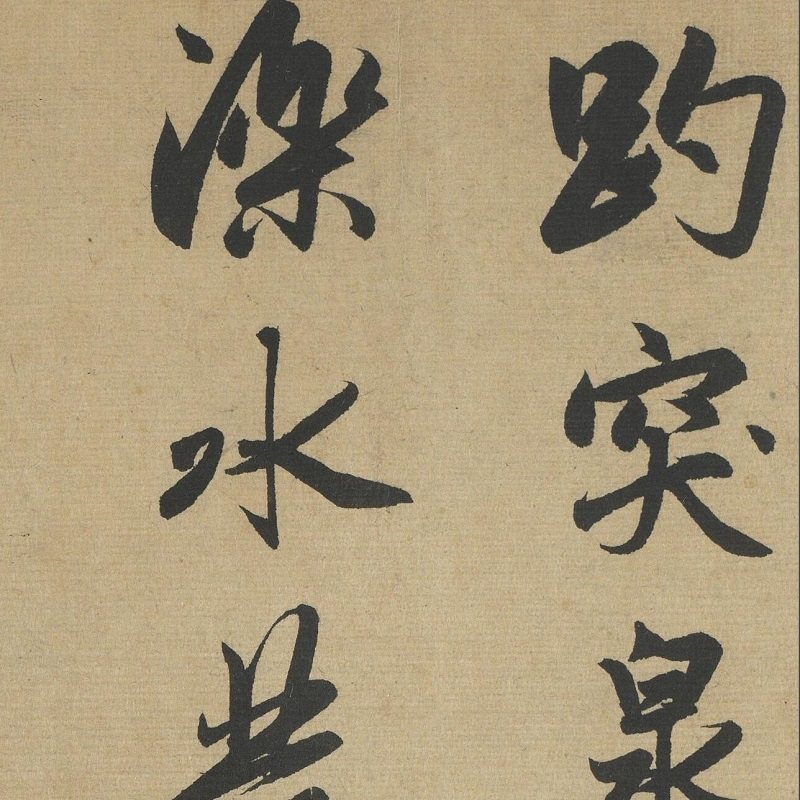 趵突泉
濼水